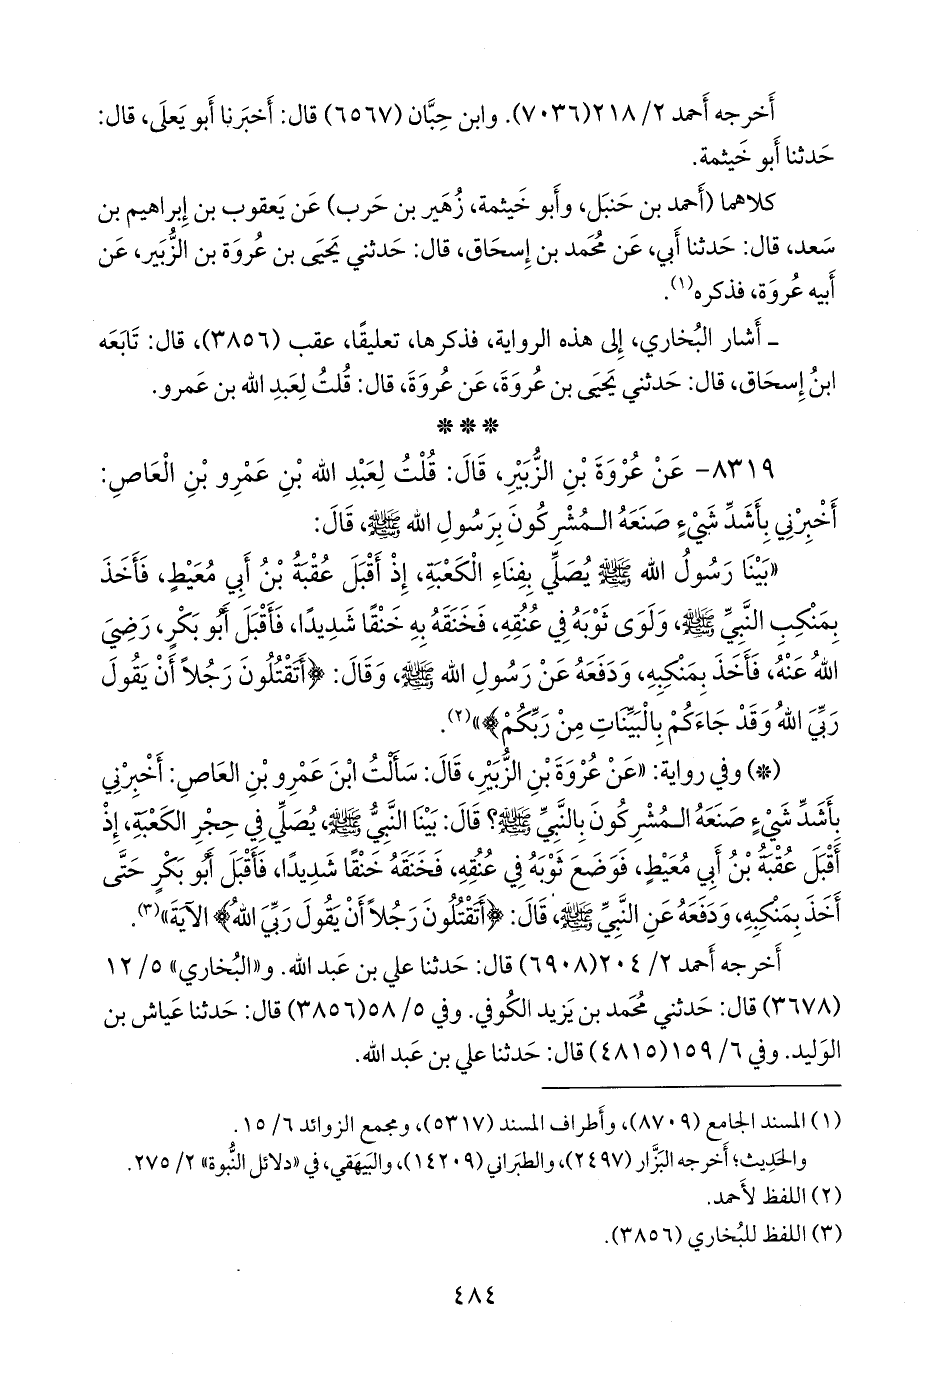 أَخرجه أَحمد ٢/ ٢١٨(٧٠٣٦). وابن حِبَّان (٦٥٦٧) قال: أَخبَرنا أَبو يَعلَى، قال:
حَدثنا أَبو خَيثمة.
كلاهما (أَحمد بن حَنبَل، وأَبو خَيثمة، زُهَير بن حَرب) عَن يَعقوب بن إِبراهيم بن
سَعد، قال: حَدثنا أَبي، عَن مُحمد بن إِسحاق، قال: حَدثني يَحيَى بن عُروَة بن الزُّبَير، عَن
أَبيه عُروَة، فذكره(١).
ـ أَشار البُخاري، إِلى هذه الرواية، فذكرها، تعليقًا، عقب (٣٨٥٦)، قال: تَابَعَه
ابنُ إِسحَاق، قال: حَدثني يَحيَى بن عُروَةَ، عَن عُروَةَ، قال: قُلتُ لِعَبدِ الله بن عَمرو.
* * *
٨٣١٩- عَنْ عُرْوَةَ بْنِ الزُّبَيْرِ، قَالَ: قُلْتُ لِعَبْدِ الله بْنِ عَمْرِو بْنِ الْعَاصِ:
أَخْبِرْنِي بِأَشَدِّ شَيْءٍ صَنَعَهُ الـمُشْرِكُونَ بِرَسُولِ الله ﷺ، قَالَ:
«بَيْنَا رَسُولُ الله ﷺ يُصَلِّي بِفِنَاءِ الْكَعْبَةِ، إِذْ أَقْبَلَ عُقْبَةُ بْنُ أَبِي مُعَيْطٍ، فَأَخَذَ
بِمَنْكِبِ النَّبِيِّ ﷺ، وَلَوَى ثَوْبَهُ فِي عُنُقِهِ، فَخَنَقَهُ بِهِ خَنْقًا شَدِيدًا، فَأَقْبَلَ أَبُو بَكْرٍ، رَضِيَ
اللهُ عَنْهُ، فَأَخَذَ بِمَنْكِبِهِ، وَدَفَعَهُ عَنْ رَسُولِ الله ﷺ، وَقَالَ: ﴿أَتَقْتُلُونَ رَجُلاً أَنْ يَقُولَ
رَبِّيَ اللهُ وَقَدْ جَاءَكُمْ بِالْبَيِّنَاتِ مِنْ رَبِّكُمْ﴾»(٢).
(*) وفي رواية: «عَنْ عُرْوَةَ بْنِ الزُّبَيْرِ، قَالَ: سَأَلْتُ ابْنَ عَمْرِو بْنِ العَاصِ: أَخْبِرْنِي
بِأَشَدِّ شَيْءٍ صَنَعَهُ الـمُشْرِكُونَ بِالنَّبِيِّ ﷺ؟ قَالَ: بَيْنَا النَّبِيُّ ﷺ، يُصَلِّي فِي حِجْرِ الكَعْبَةِ، إِذْ
أَقْبَلَ عُقْبَةُ بْنُ أَبِي مُعَيْطٍ، فَوَضَعَ ثَوْبَهُ فِي عُنُقِهِ، فَخَنَقَهُ خَنْقًا شَدِيدًا، فَأَقْبَلَ أَبُو بَكْرٍ حَتَّى
أَخَذَ بِمَنْكِبِهِ، وَدَفَعَهُ عَنِ النَّبِيِّ ﷺ، قَالَ: ﴿أَتَقْتُلُونَ رَجُلاً أَنْ يَقُولَ رَبِّيَ اللهُ﴾ الآيَةَ»(٣).
أَخرجه أَحمد ٢/ ٢٠٤(٦٩٠٨) قال: حَدثنا علي بن عَبد الله. و«البُخاري» ٥/ ١٢
(٣٦٧٨) قال: حَدثني مُحمد بن يَزيد الكُوفي. وفي ٥/ ٥٨(٣٨٥٦) قال: حَدثنا عَياش بن
الوَليد. وفي ٦/ ١٥٩(٤٨١٥) قال: حَدثنا علي بن عَبد الله.
(١) المسند الجامع (٨٧٠٩)، وأَطراف المسند (٥٣١٧)، ومجمع الزوائد ٦/ ١٥.
والحَدِيث؛ أَخرجه البَزَّار (٢٤٩٧)، والطبَراني (١٤٢٠٩)، والبَيهَقي، في «دلائل النُّبوة» ٢/ ٢٧٥.
(٢) اللفظ لأَحمد.
(٣) اللفظ للبُخاري (٣٨٥٦).
٤٨٤